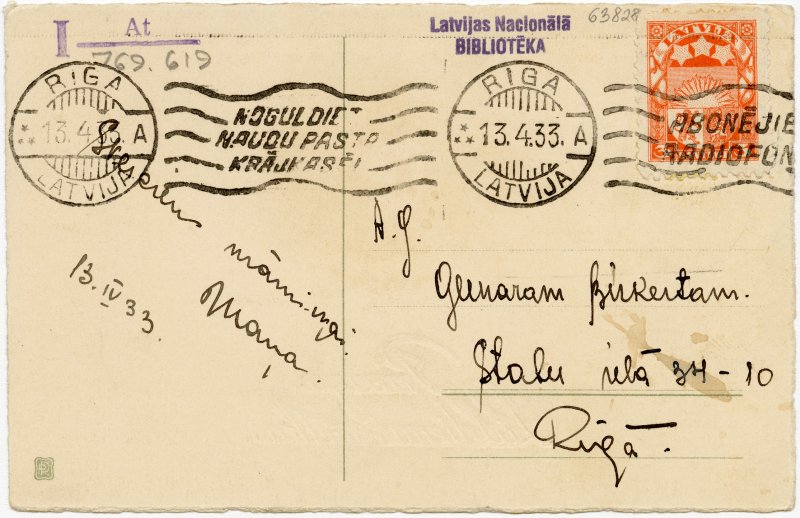 I At
769.619
Latvijas Nacionālā
BIBLIOTĒKA
63828
LATVIJA
RIGA
13.4.33. A
LATVIJA
NOGULDIET
NAUDU PASTA
KRĀJKASĒ!
RIGA
13.4.33. A
LATVIJA
ABONĒJIE
RADIOFON
Sveiciens
māmiņai
Maņa.
13.IV 33.
A. G.
Gunaram Birkertam.
Stabu ielā 34-10
Rīgā.